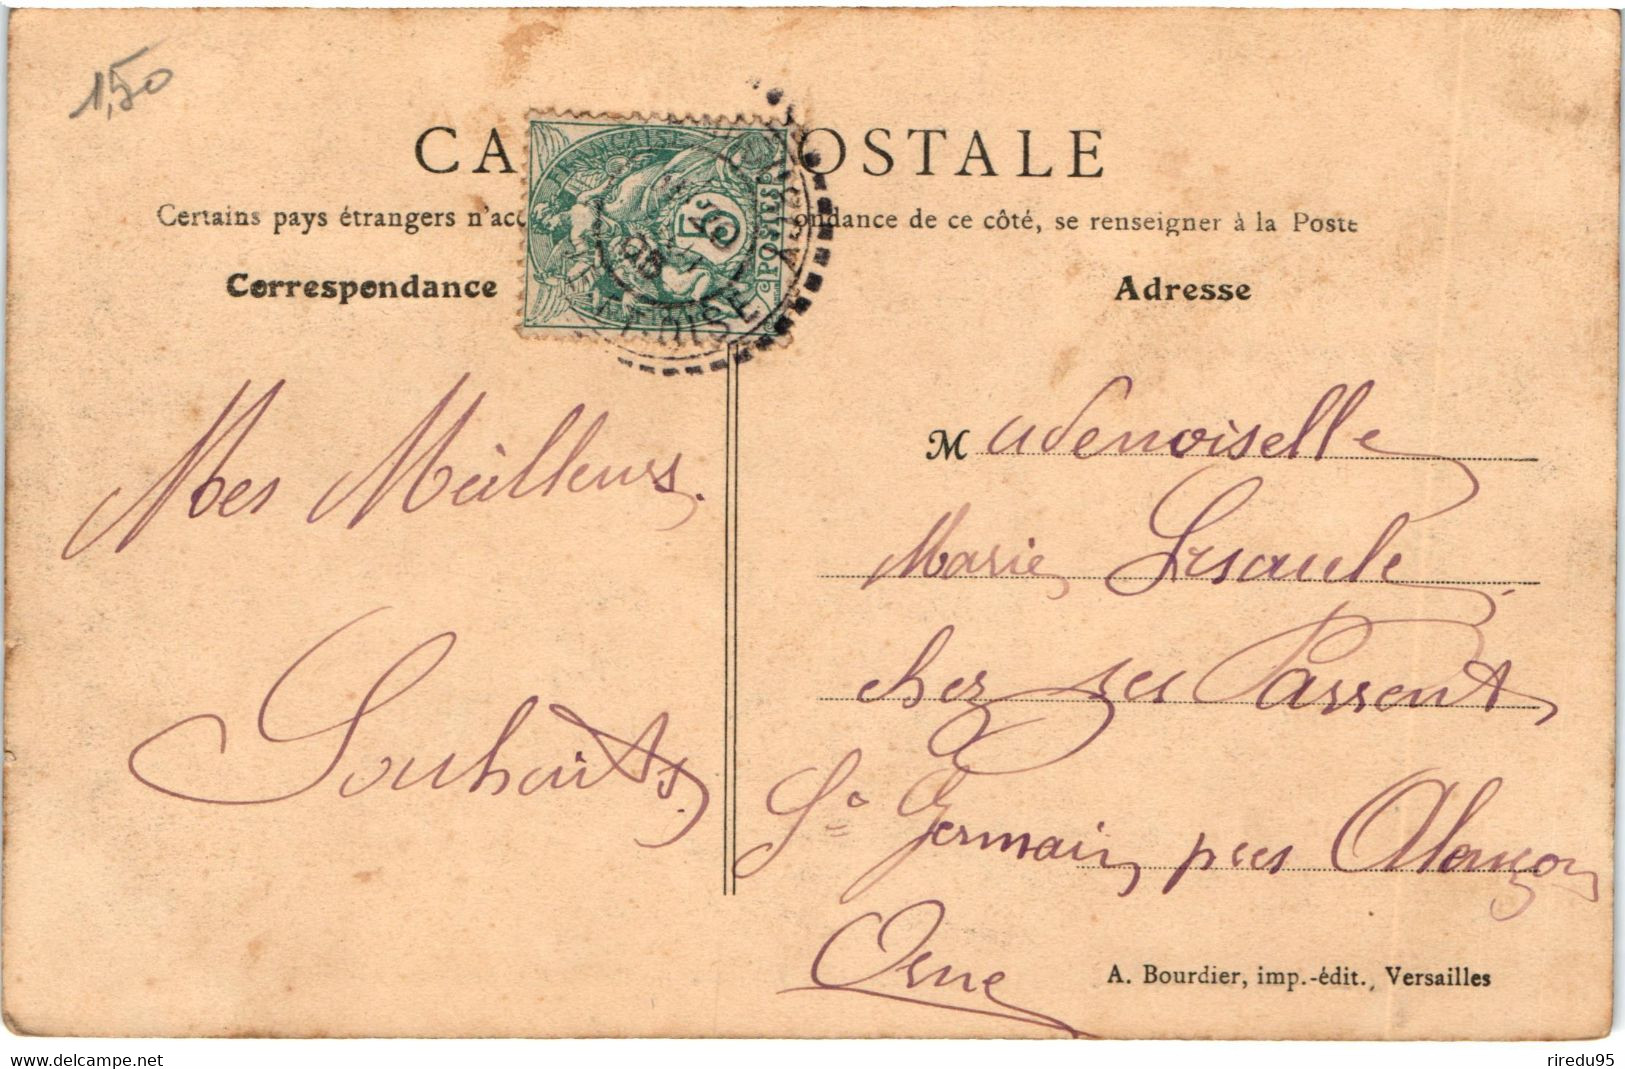 1,50
CA OSTALE
Certains pays étrangers n'acc ondance de ce côté, se renseigner à la Poste
Correspondance
Adresse
FRANÇAISE
5
POSTES
OISE
Mes Meilleurs
Souhaits
Mademoiselle
Marie
chez ses Parrent
St Germain près Alençon
Orne
A. Bourdier, imp.-édit., Versailles
www.delcampe.net
riredu95